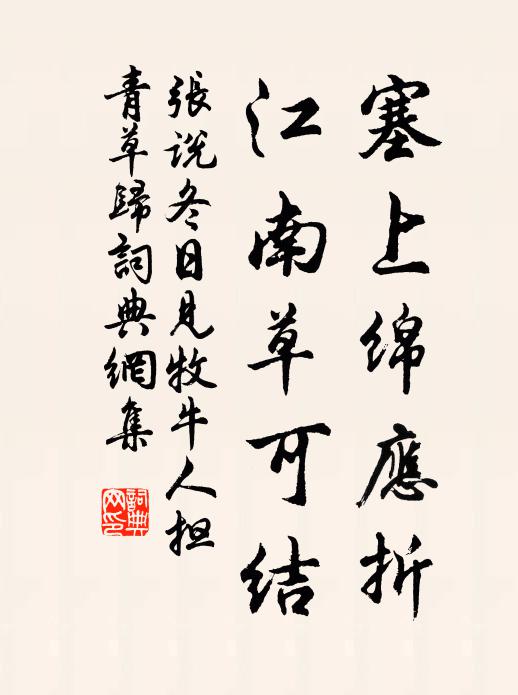 塞上绵應折
江南草可结
張说冬日見牧牛人担
青草歸詞典網集
詞典
网印